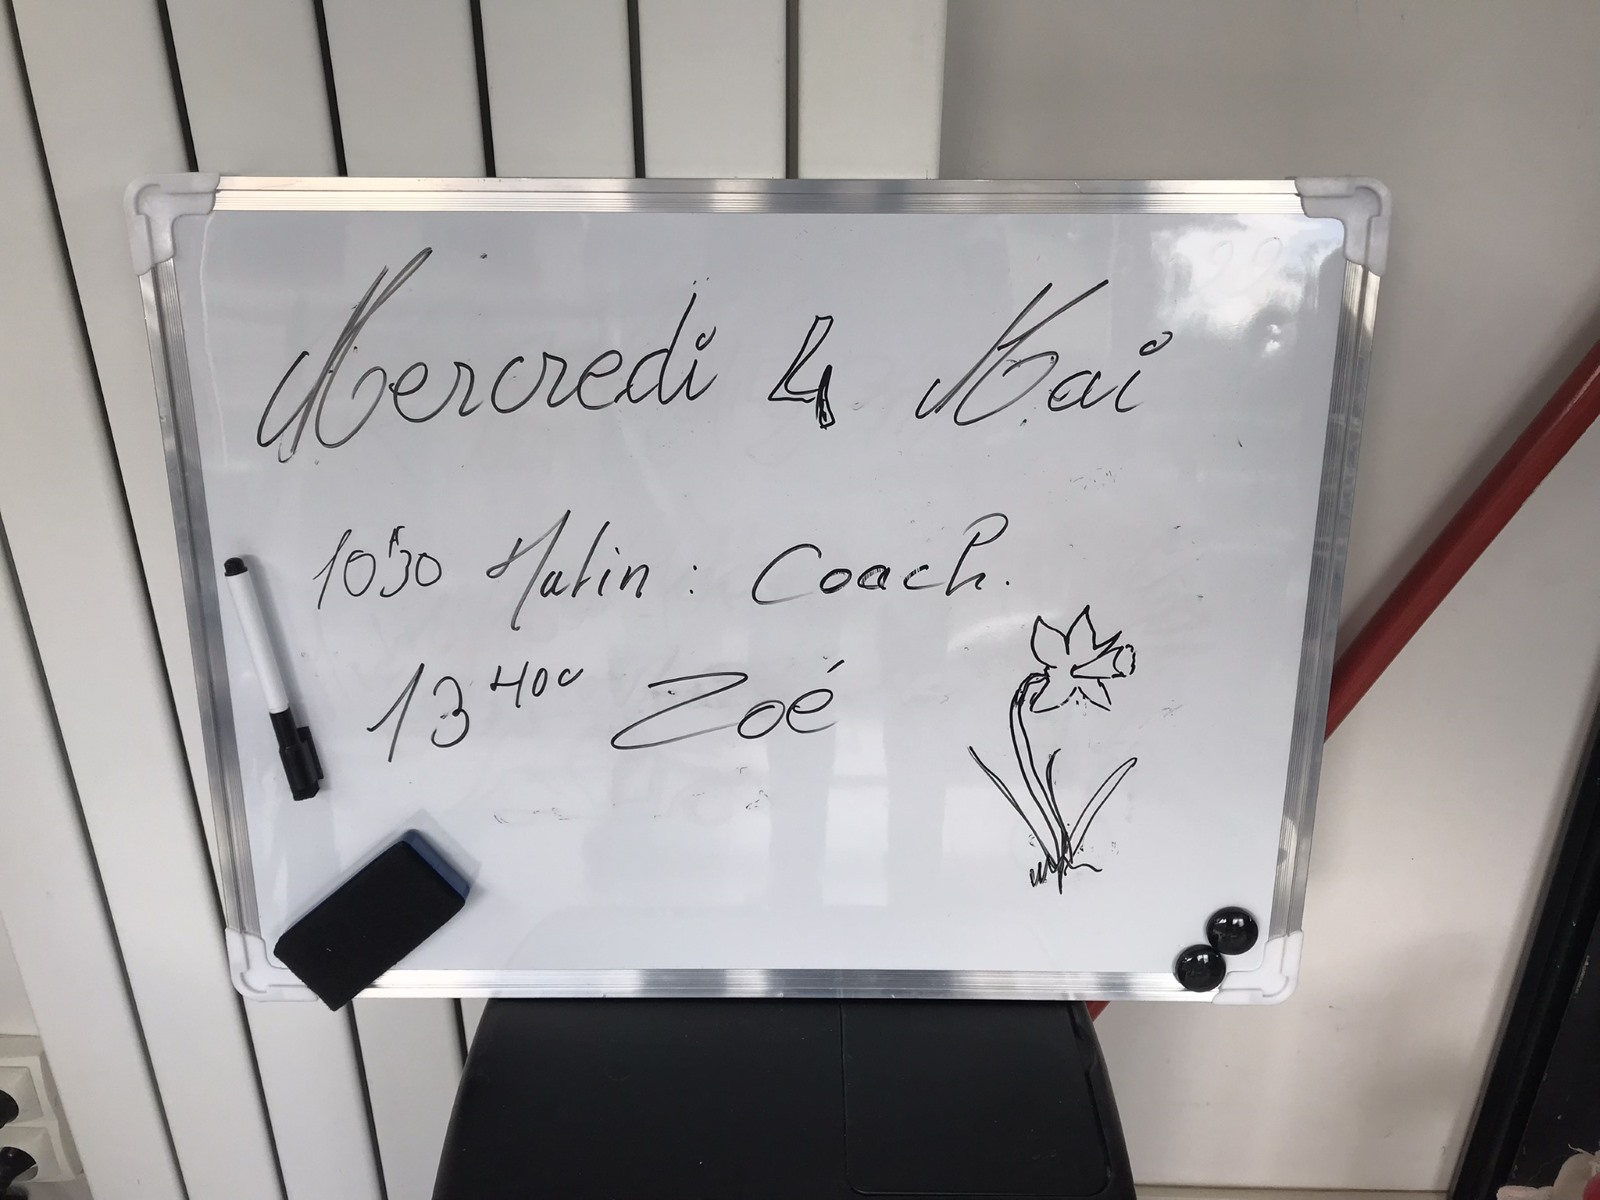 Mercredi 4 Mai
10h30 Matin : Coach.
13H00 Zoé